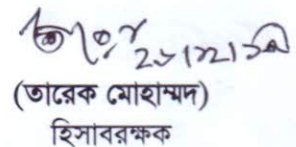 (তারেক মোহাম্মদ)
হিসাবরক্ষক